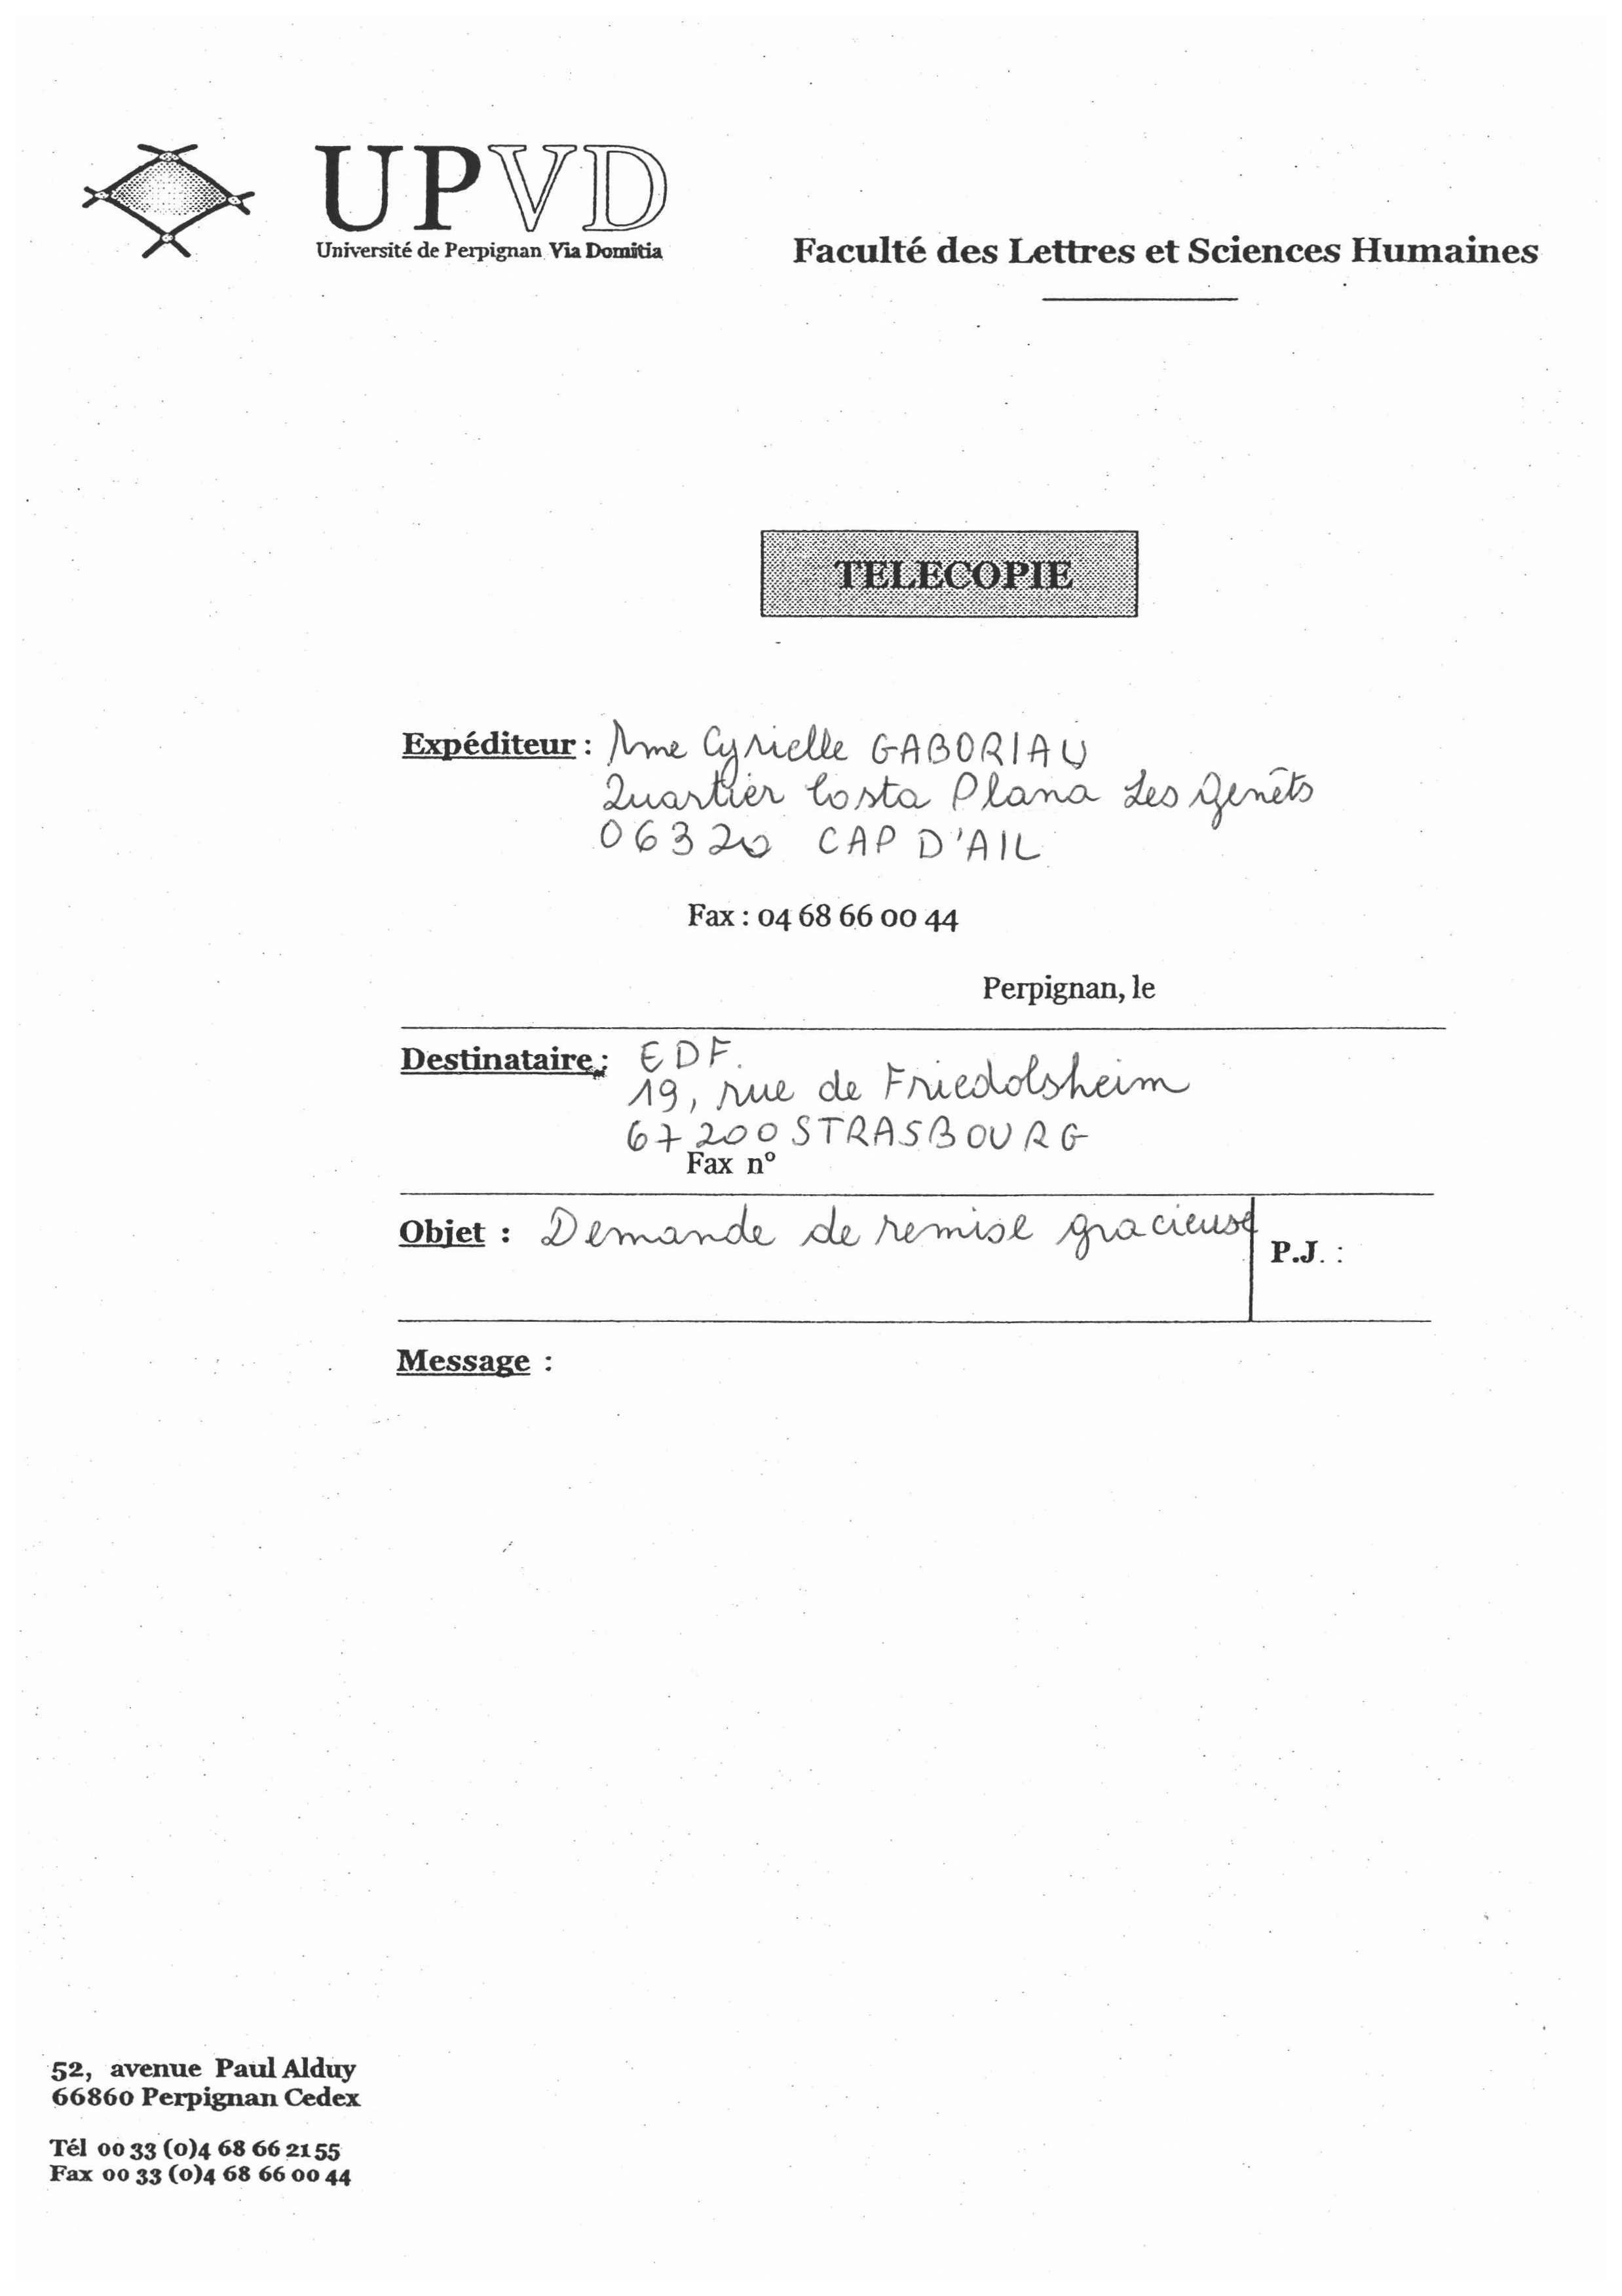 UPVD
Université de Perpignan Via Domitia
Faculté des Lettres et Sciences Humaines
TELECOPIE
Expéditeur : Mme Cyrielle GABORIAU
Quartier Costa Plana Les Genêts
06320 CAP D'AIL
Fax : 04 68 66 00 44
Perpignan, le
Destinataire : EDF.
19, rue de Friedolsheim
67200 STRASBOURG
Fax n°
Objet : Demande de remise gracieuse
P.J. :
Message :
52, avenue Paul Alduy
66860 Perpignan Cedex
Tél 00 33 (0)4 68 66 21 55
Fax 00 33 (0)4 68 66 00 44